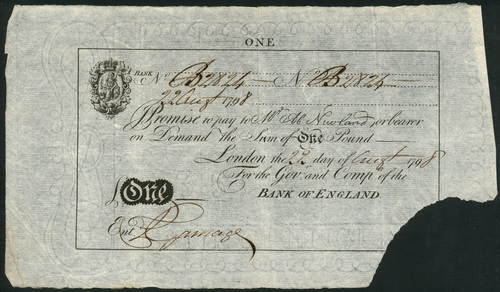 ONE
BANK No. B2824 No. B2824
22 Augst 1798
I Promise to pay to Mr. Ab. Newland, or bearer
on Demand the Sum of One Pound
London the 22 day of Augst 1798
For the Gov: and Compa. of the
BANK OF ENGLAND.
£ One
Entd.